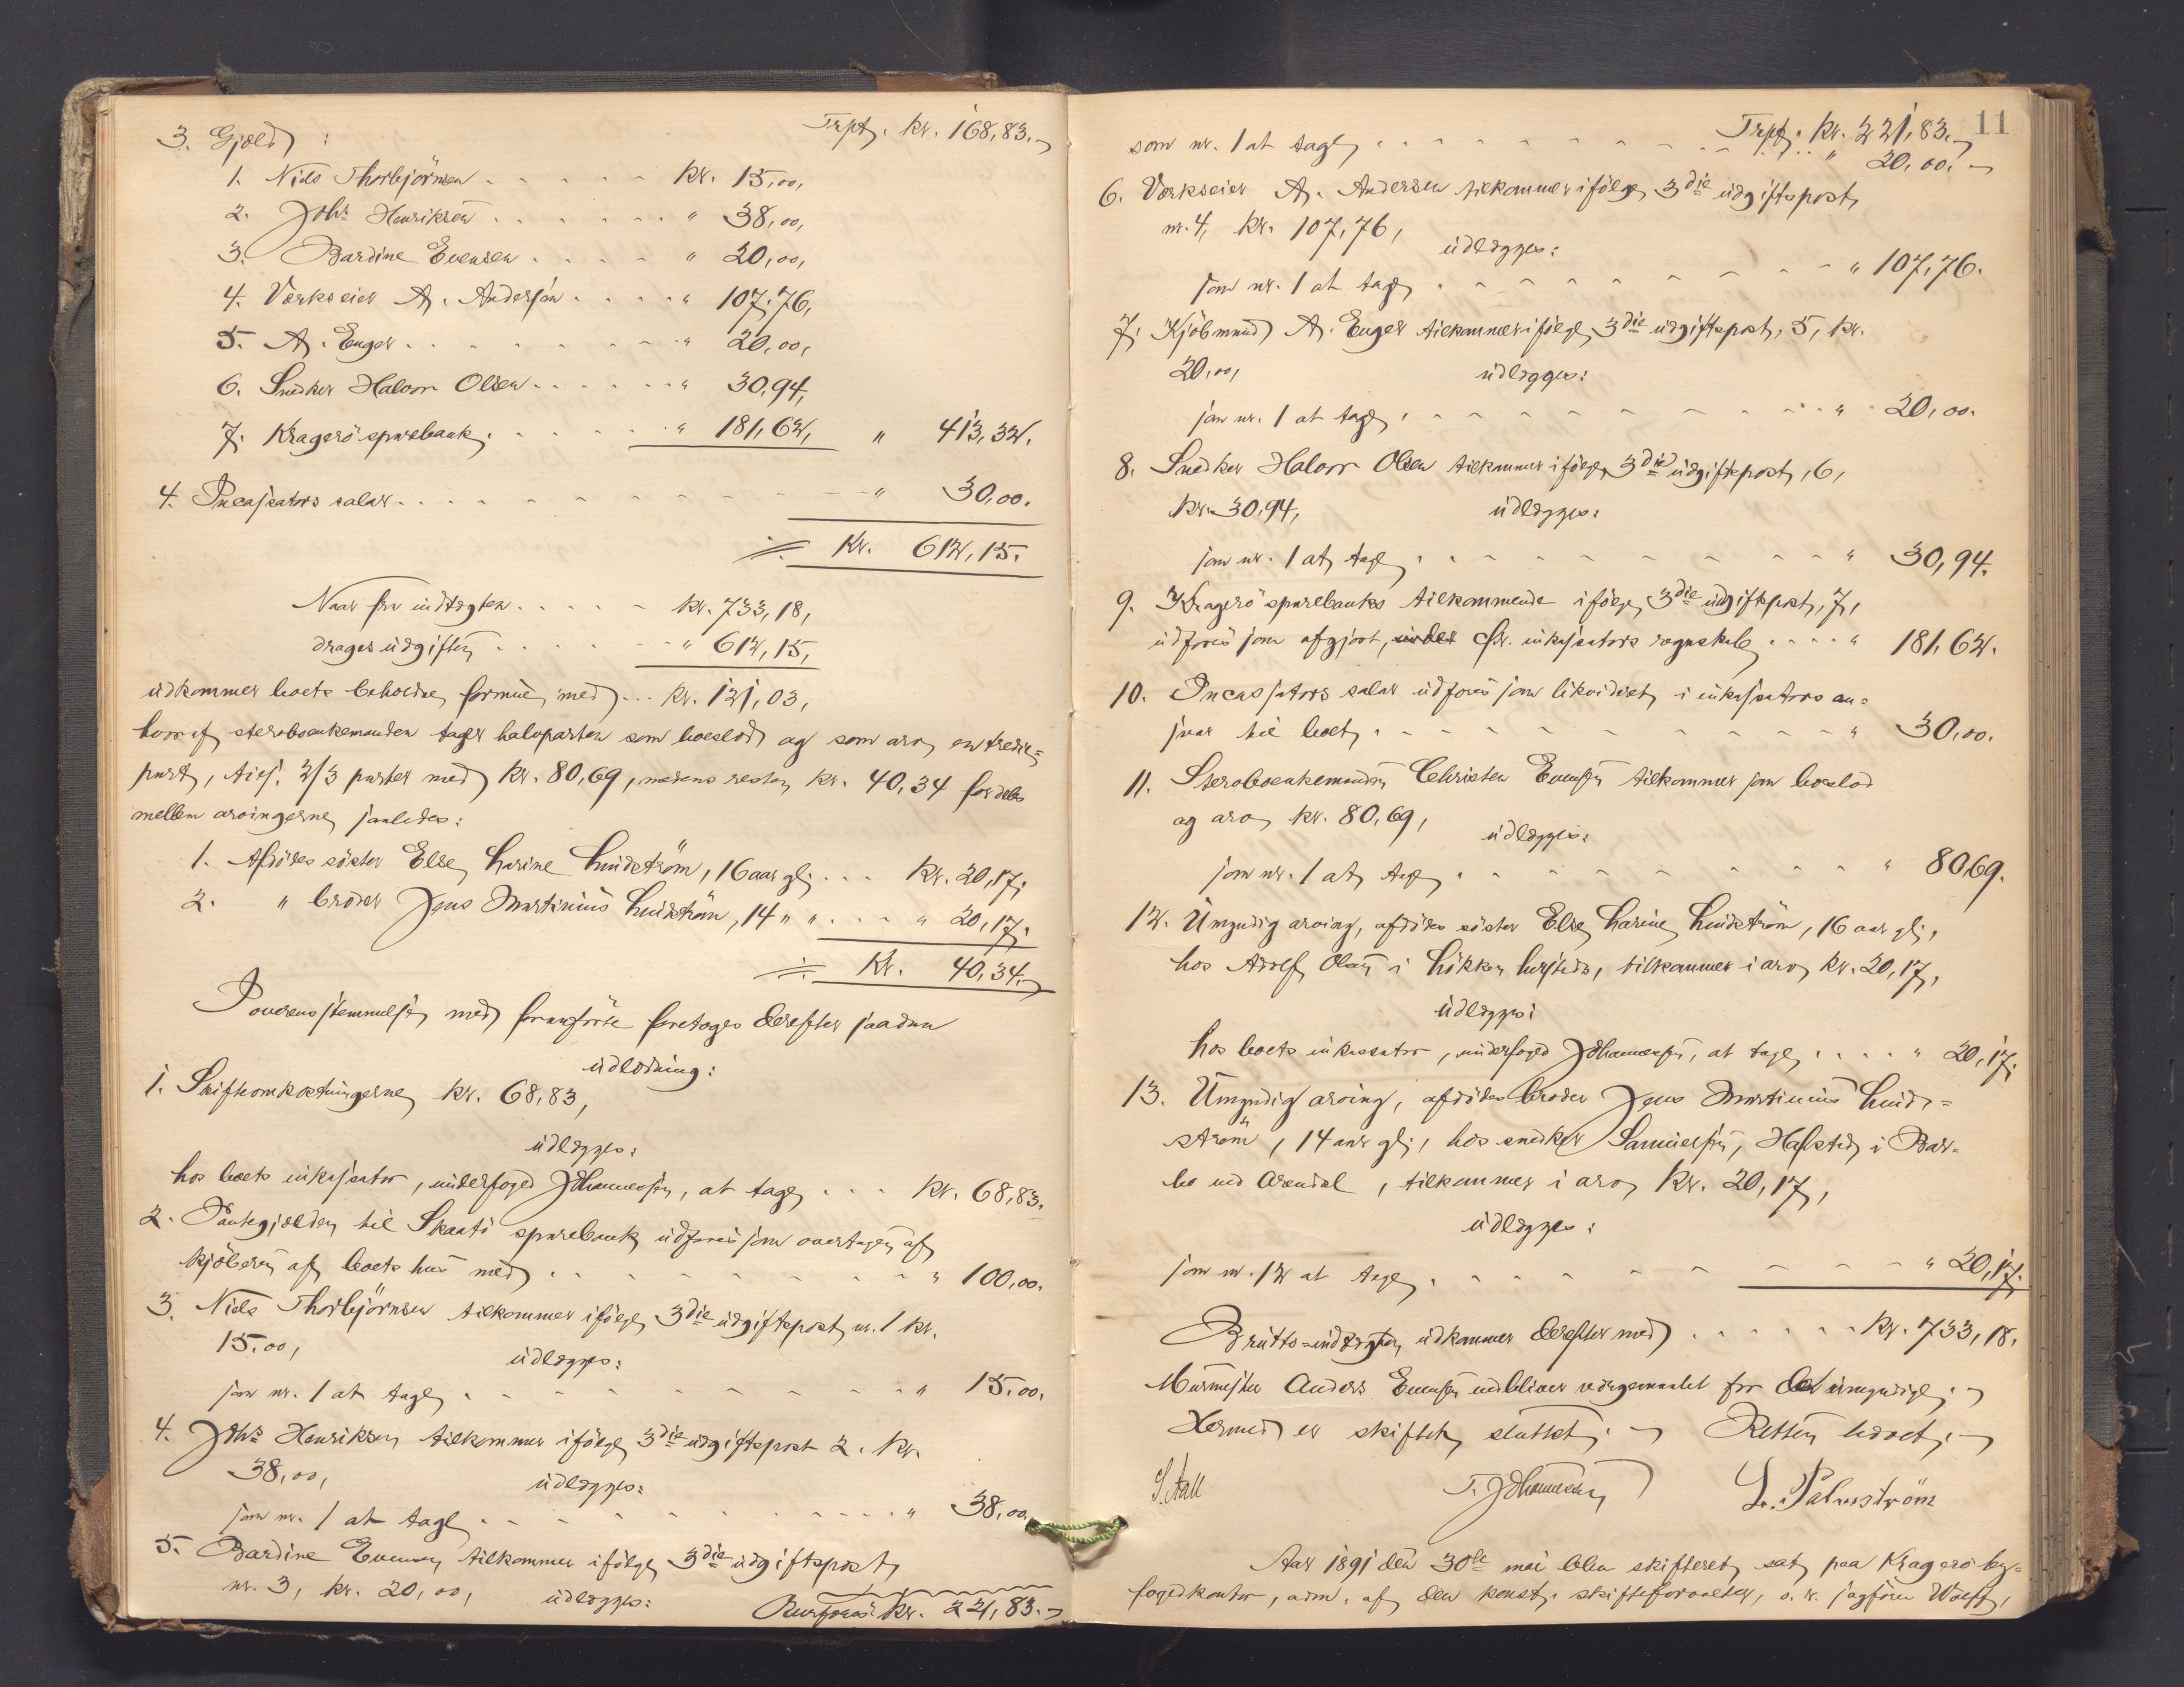 Trpt. Kr. 168,83.
3. Gjæld:
1. Niels Thorbjörnsen . . . . . Kr. 15,00,
2. Johs Henriksen . . . . . . " 38,00,
3. Bardine Evensen . . . . " 20,00,
4. Værkseier A. Andersen . . . . " 107,76,
5. A. Enger . . . . . . . . " 20,00,
6. Snedker Halvor Olsen . . . . . . " 30,94,
7. Kragerö sparebank . . . . . . " 181,62, " 413,32.
4. Incassators salær . . . . . . . . . . . . " 30,00.
÷ Kr. 612,15.
Naar fra indtægten . . . . . Kr. 733,18,
drages udgiften . . . . . . " 612,15,
udkommer boets beholdne formue med . . . Kr. 121,03,
hvoraf sterboenkemanden tager halvparten som boeslod og som arv en tredie-
part, tils. 2/3 parter med Kr. 80,69, medens resten Kr. 40,34 fordeles
mellem arvingerne saaledes:
1. Afdödes söster Else Karine Lindström, 16 aar gl. . . . Kr. 20,17,
2. " broder Jens Martinius Lindström, 14 " " . . . " 20,17.
÷ Kr. 40,34.
I overensstemmelse med foranförte foretages derefter saadan
udlodning:
1. Skifteomkostningerne Kr. 68,83,
udlægges:
hos boets inkassator, underfoged Johannesen, at tage . . . Kr. 68,83.
2. Pantegjælden til Skaatö sparebank udföres som overtagen af
kjöberen af boets hus med . . . . . . . . . . " 100,00.
3. Niels Thorbjörnsen tilkommer ifölge 3die udgiftspost nr. 1 Kr.
15,00, udlægges:
som nr. 1 at tage . . . . . . . . . . . " 15,00.
4. Johs Henriksen tilkommer ifölge 3die udgiftspost 2. Kr.
38,00, udlægges:
som nr. 1 at tage . . . . . . . . . . . " 38,00.
5. Bardine Evensen tilkommer ifölge 3die udgiftspost
nr. 3, kr. 20,00, udlægges:
Overföres Kr. 221,83.
11
Trpt. Kr. 221,83.
som nr. 1 at tage . . . . . . . . . . . . " 20,00.
6. Værkseier A. Andersen tilkommer ifölge 3die udgiftspost
nr. 4, Kr. 107,76, udlægges:
som nr. 1 at tage . . . . . . . . . . " 107,76.
7. Kjöbmand A. Enger tilkommer ifölge 3die udgiftspost, 5, kr.
20,00, udlægges:
som nr. 1 at tage . . . . . . . . . . . " 20,00.
8. Snedker Halvor Olsen tilkommer ifölge 3die udgiftspost, 6,
Kr. 30,94, udlægges:
som nr. 1 at tage . . . . . . . . . . " 30,94.
9. Kragerö sparebanks tilkommende ifölge 3die udgiftspost, 7,
udföres som afgjort, under cfr. inkassators regnskab . . . . " 181,62.
10. Incassators salær udföres som likvideret i inkassators an-
svar til boet . . . . . . . . . . . . . " 30,00.
11. Sterboenkemanden Christen Evensen tilkommer som boeslod
og arv kr. 80,69, udlægges:
som nr. 1 at tage . . . . . . . . . . . " 80,69.
12. Umyndig arving, afdödes söster Else Karine Lindström, 16 aar gl.,
hos Adolf Olsen i Lökken hersteds, tilkommer i arv kr. 20,17,
udlægges:
hos boets inkassator, underfoged Johannesen, at tage . . . . " 20,17.
13. Umyndig arving, afdödes broder Jens Martinius Lind-
ström, 14 aar gl., hos snedker Samuelsen, Hafsted i Bar-
bo ved Arendal, tilkommer i arv Kr. 20,17,
udlægges:
som nr. 12 at tage . . . . . . . . . . . " 20,17.
Brutto-indtægten udkommer derefter med . . . . . . Kr. 733,18.
Murmester Anders Evensen vedbliver værgemaalet for de umyndige.
Hermed er skiftet sluttet. Retten hævet.
S. Aall T. Johannesen L. Palmström
Aar 1891 den 30te mai blev skifteret sat paa Kragerö by-
fogedkontor, adm. af den konst. skifteforvalter, o. r. sagförer Wolff,